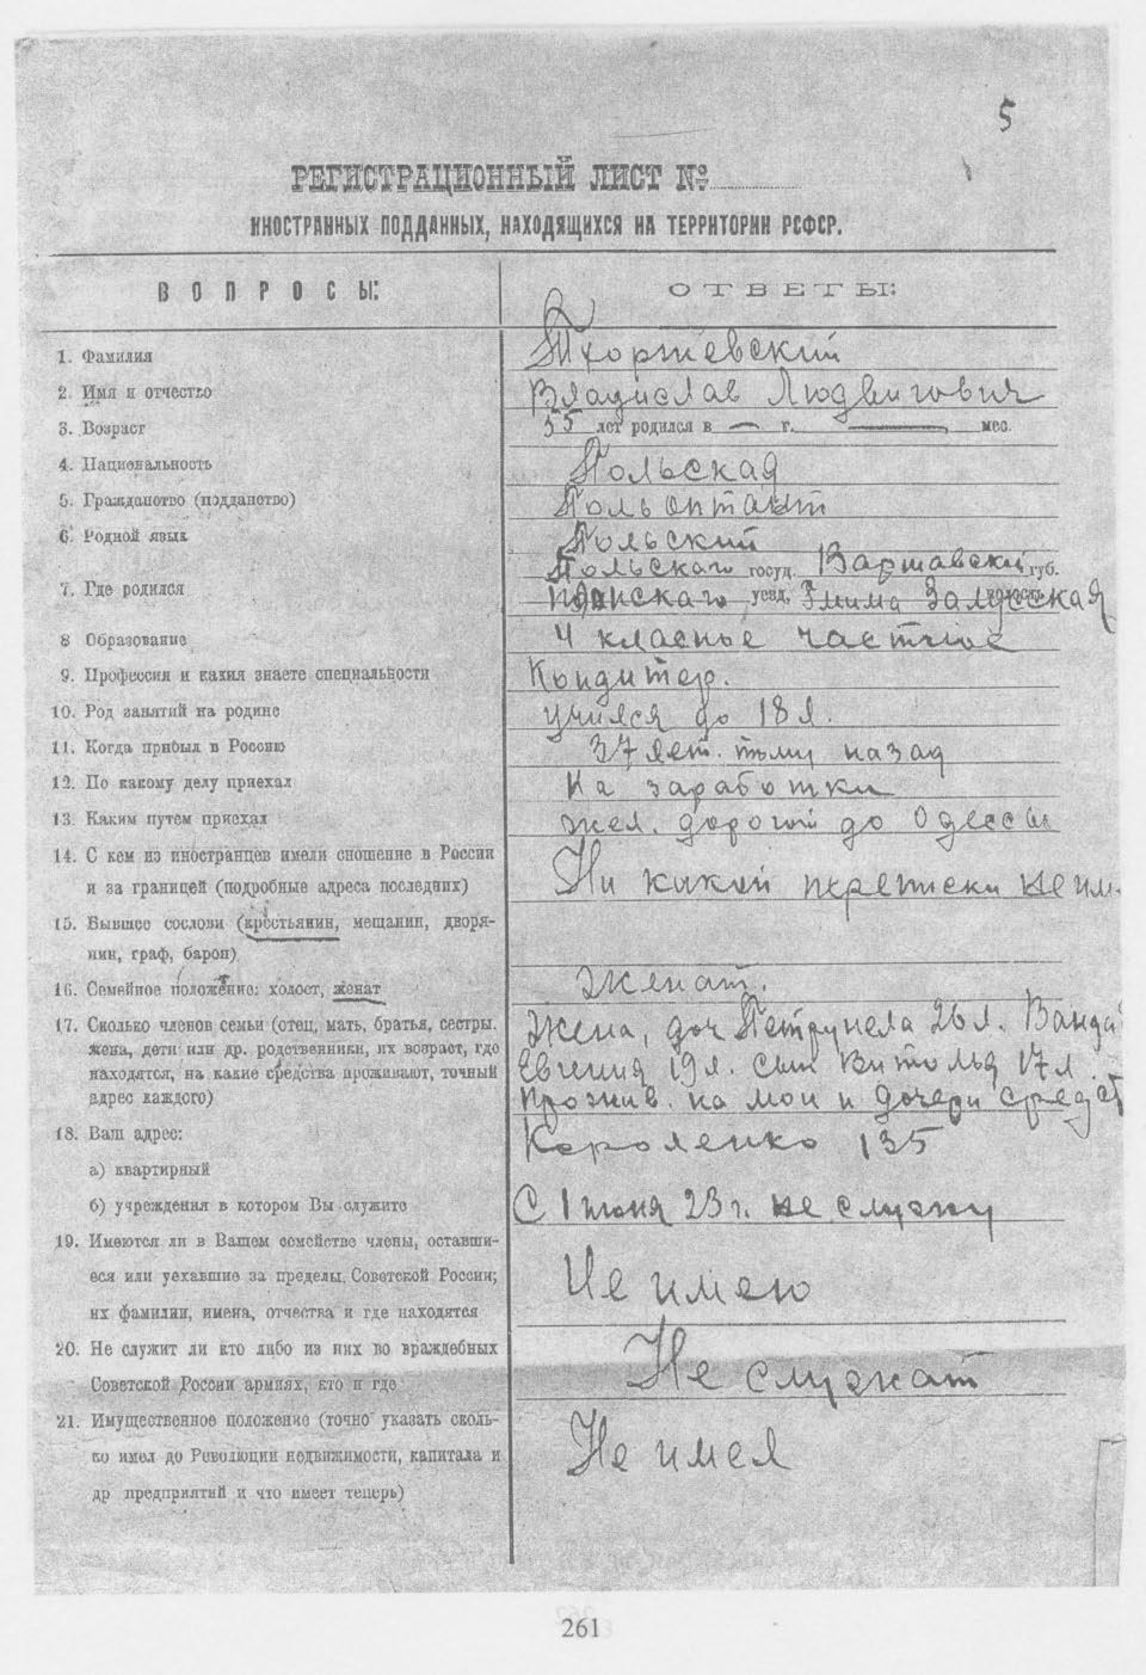 5
РЕГИСТРАЦИОННЫЙ ЛИСТ №
ИНОСТРАННЫХ ПОДДАННЫХ, НАХОДЯЩИХСЯ НА ТЕРРИТОРИИ РСФСР.
ВОПРОСЫ: ОТВЕТЫ:
1. Фамилия Тхоржевский
2. Имя и отчество Владислав Людвигович
3. Возраст 55 лет родился в — г. — мес.
4. Национальность Польская
5. Гражданство (подданство) Поль оптант
6. Родной язык Польский
7. Где родился Польскаго госуд. Варшавский губ.
уезд, Гмима Залусская
8 Образование 4 класное частное
9. Профессия и какия знаете специальности Кондитер.
10. Род занятий на родине учился до 18 л.
11. Когда прибыл в Россию 37 лет. тому назад
12. По какому делу приехал На заработки
13. Каким путем приехал жел. дорогой до Одессы
14. С кем из иностранцев имели сношение в России
и за границей (подробные адреса последних) Ни какой переписки не им.
15. Бывшее сослови (крестьянин, мещанин, дворя-
нин, граф, барон)
16. Семейное положение: холост, женат женат.
17. Сколько членов семьи (отец, мать, братья, сестры. Жена, доч Петрунела 26 л. Ванда
жена, дети или др. родственники, их возраст, где
находятся, на какие средства проживают, точный Евгения 19 л. сын Витольд 17 л.
адрес каждого) прожив. на мои и дочери средст
18. Ваш адрес: Короленко 135
а) квартирный
б) учреждения в котором Вы служите С 1 июня 23 г. не служу
19. Имеются ли в Вашем семействе члены, оставши-
еся или уехавшие за пределы Советской России; Не имею
их фамилии, имена, отчества и где находятся
20. Не служит ли кто либо из них во враждебных
Советской России армиях, кто и где Не служат
21. Имущественное положение (точно указать сколь-
ко имел до Революции недвижимости, капитала и Не имел
др предприятий и что имеет теперь)
261